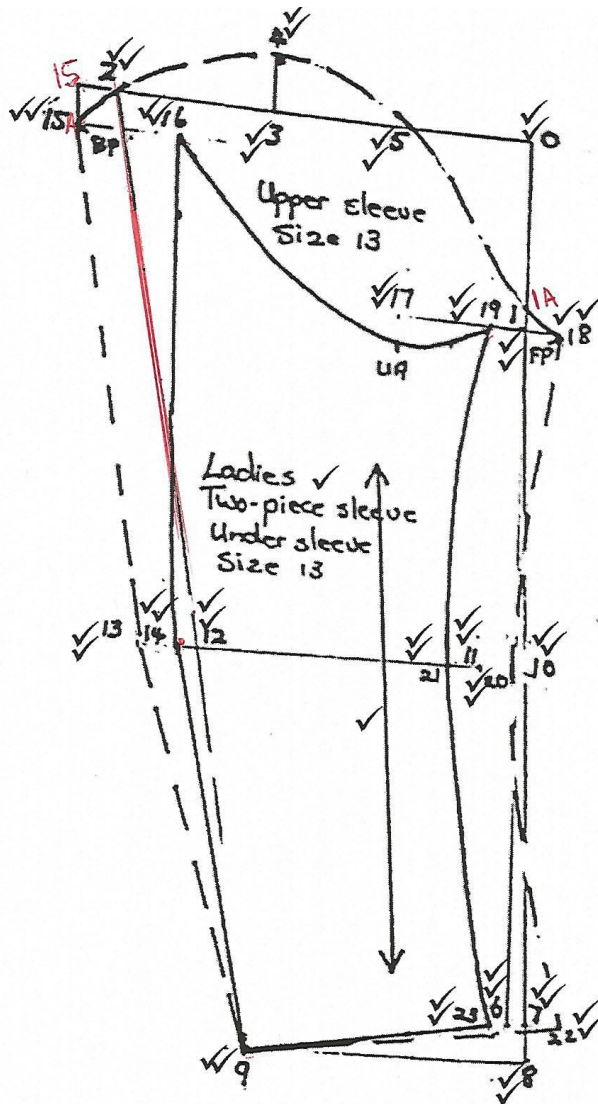 4
15
2
15A
BP
16
3
5
0
Upper sleeve
Size 13
17
19
1
1A
18
FP
UA
Ladies
Two-piece sleeve
Under sleeve
Size 13
13
14
12
11
10
21
20
23
6
7
22
9
8